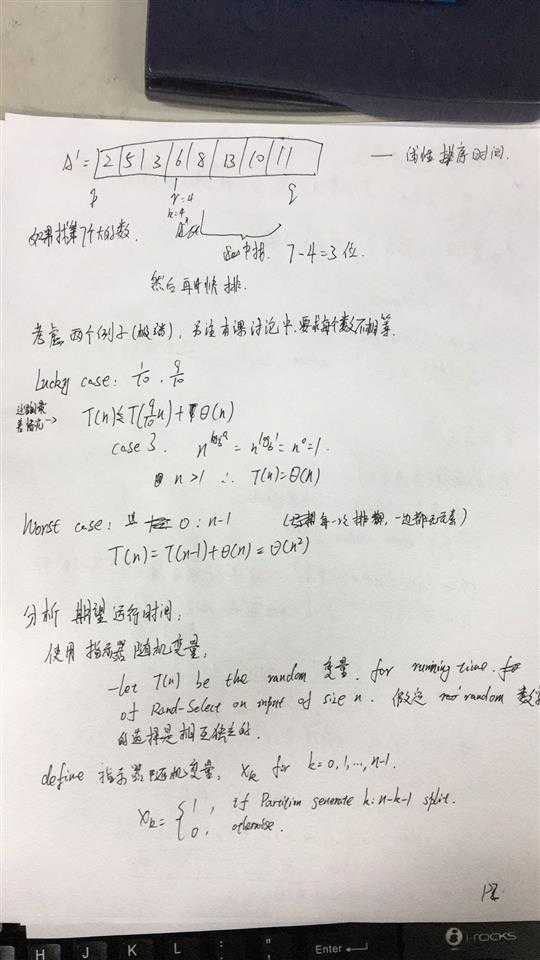 A' = 2 5 3 6 8 13 10 11 — 线性排序时间.
p r=4 q
k=4
如果找第7个大的数. 7-4=3位.
然后再 快排.
考虑两个例子(极端), 要求每个数不相等.
Lucky case: 1/10 · 9/10
→ T(n) ≤ T(9/10 n) + Θ(n)
case 3. = n⁰ = 1.
n>1 ∴ T(n)=Θ(n)
Worst case: 0 : n-1 (每一次排, 一边都无元素)
T(n) = T(n-1) + Θ(n) = Θ(n²)
分析 期望运行时间:
使用 指示器随机变量,
-let T(n) be the random 变量. for running time.
of Rand-Select on input of size n. 假定 random 数
的选择是相互独立的.
define 指示器随机变量, Xk for k=0,1,...,n-1.
Xk = { 1, if Partition generate k:n-k-1 split.
0, otherwise.
H J K L : ; " ' Enter
i-rocks